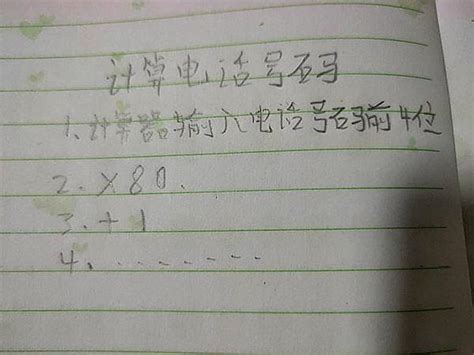 计算电话号码
1、计算器输入电话号码前4位
2. ×80.
3. +1
4、.......